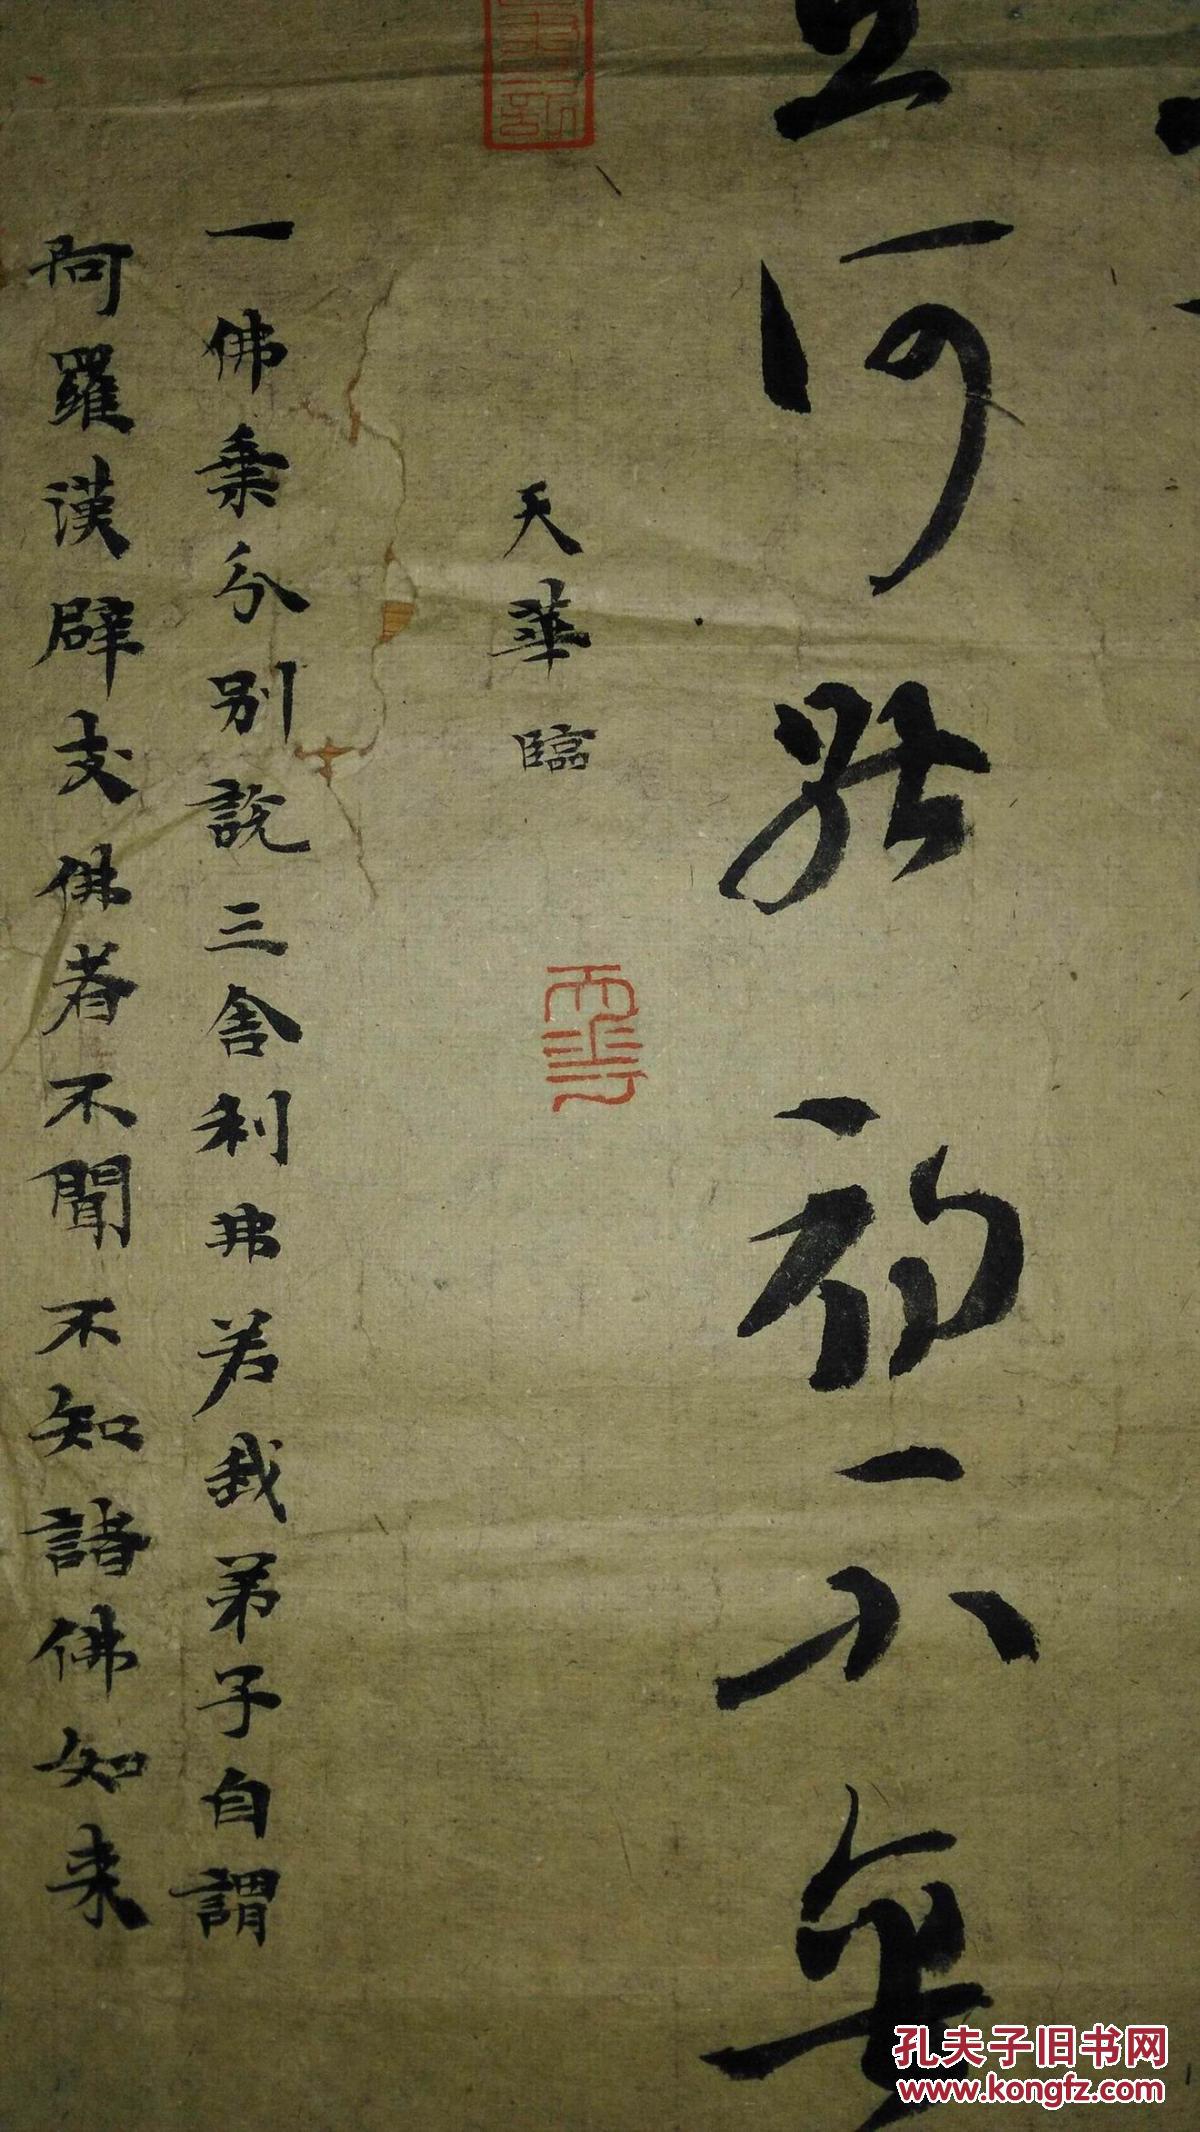 何能初不無
天華臨
一佛乗分別說三舍利弗若我弟子自謂
阿羅漢辟支佛者不聞不知諸佛如来
孔夫子旧书网
www.kongfz.com